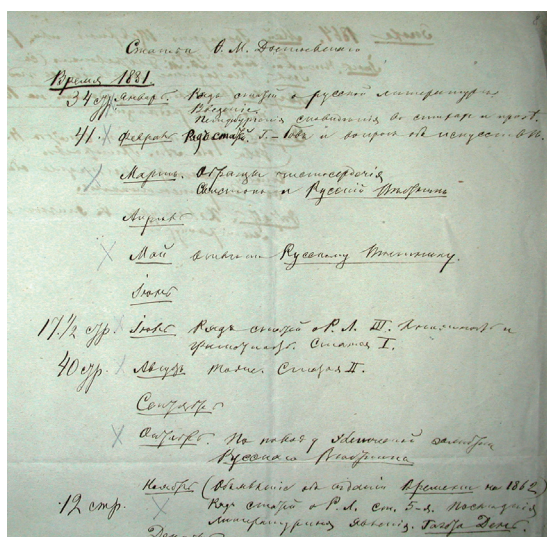 Статьи Ѳ. М. Достоевскаго
Время 1861.
34 стр. Январь. Рядъ статей о русской литературѣ
Введеніе.
Петербургскія сновидѣнія въ стихахъ и прозѣ.
41. Февраль Рядъ статей. Г. –бовъ и вопросъ объ искусствѣ.
Мартъ. Образцы чистосердечія
и Русскій Вѣстникъ
Апрѣль
Май Отвѣтъ Русскому Вѣстнику.
Іюнь
17 1/2 стр. Іюль Рядъ статей о Р. Л. III. Книжность и
грамотность. Статья I.
40 стр. Августъ тоже. Статья II.
Сентябрь
Октябрь. По поводу замѣтки
Русскаго Вѣстника
Ноябрь (Объявленіе объ изданіи Времени на 1862)
12 стр. Рядъ статей о Р. Л. ст. 5-я. Послѣднія
Литературныя явленія. Газета День.